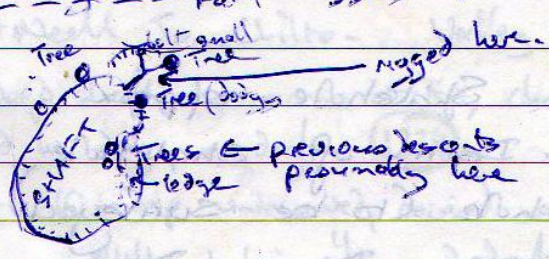 Tree
small
Tree
Rigged here.
Tree (dodgy)
SHAFT
Trees ← previous descents
ledge presumably here